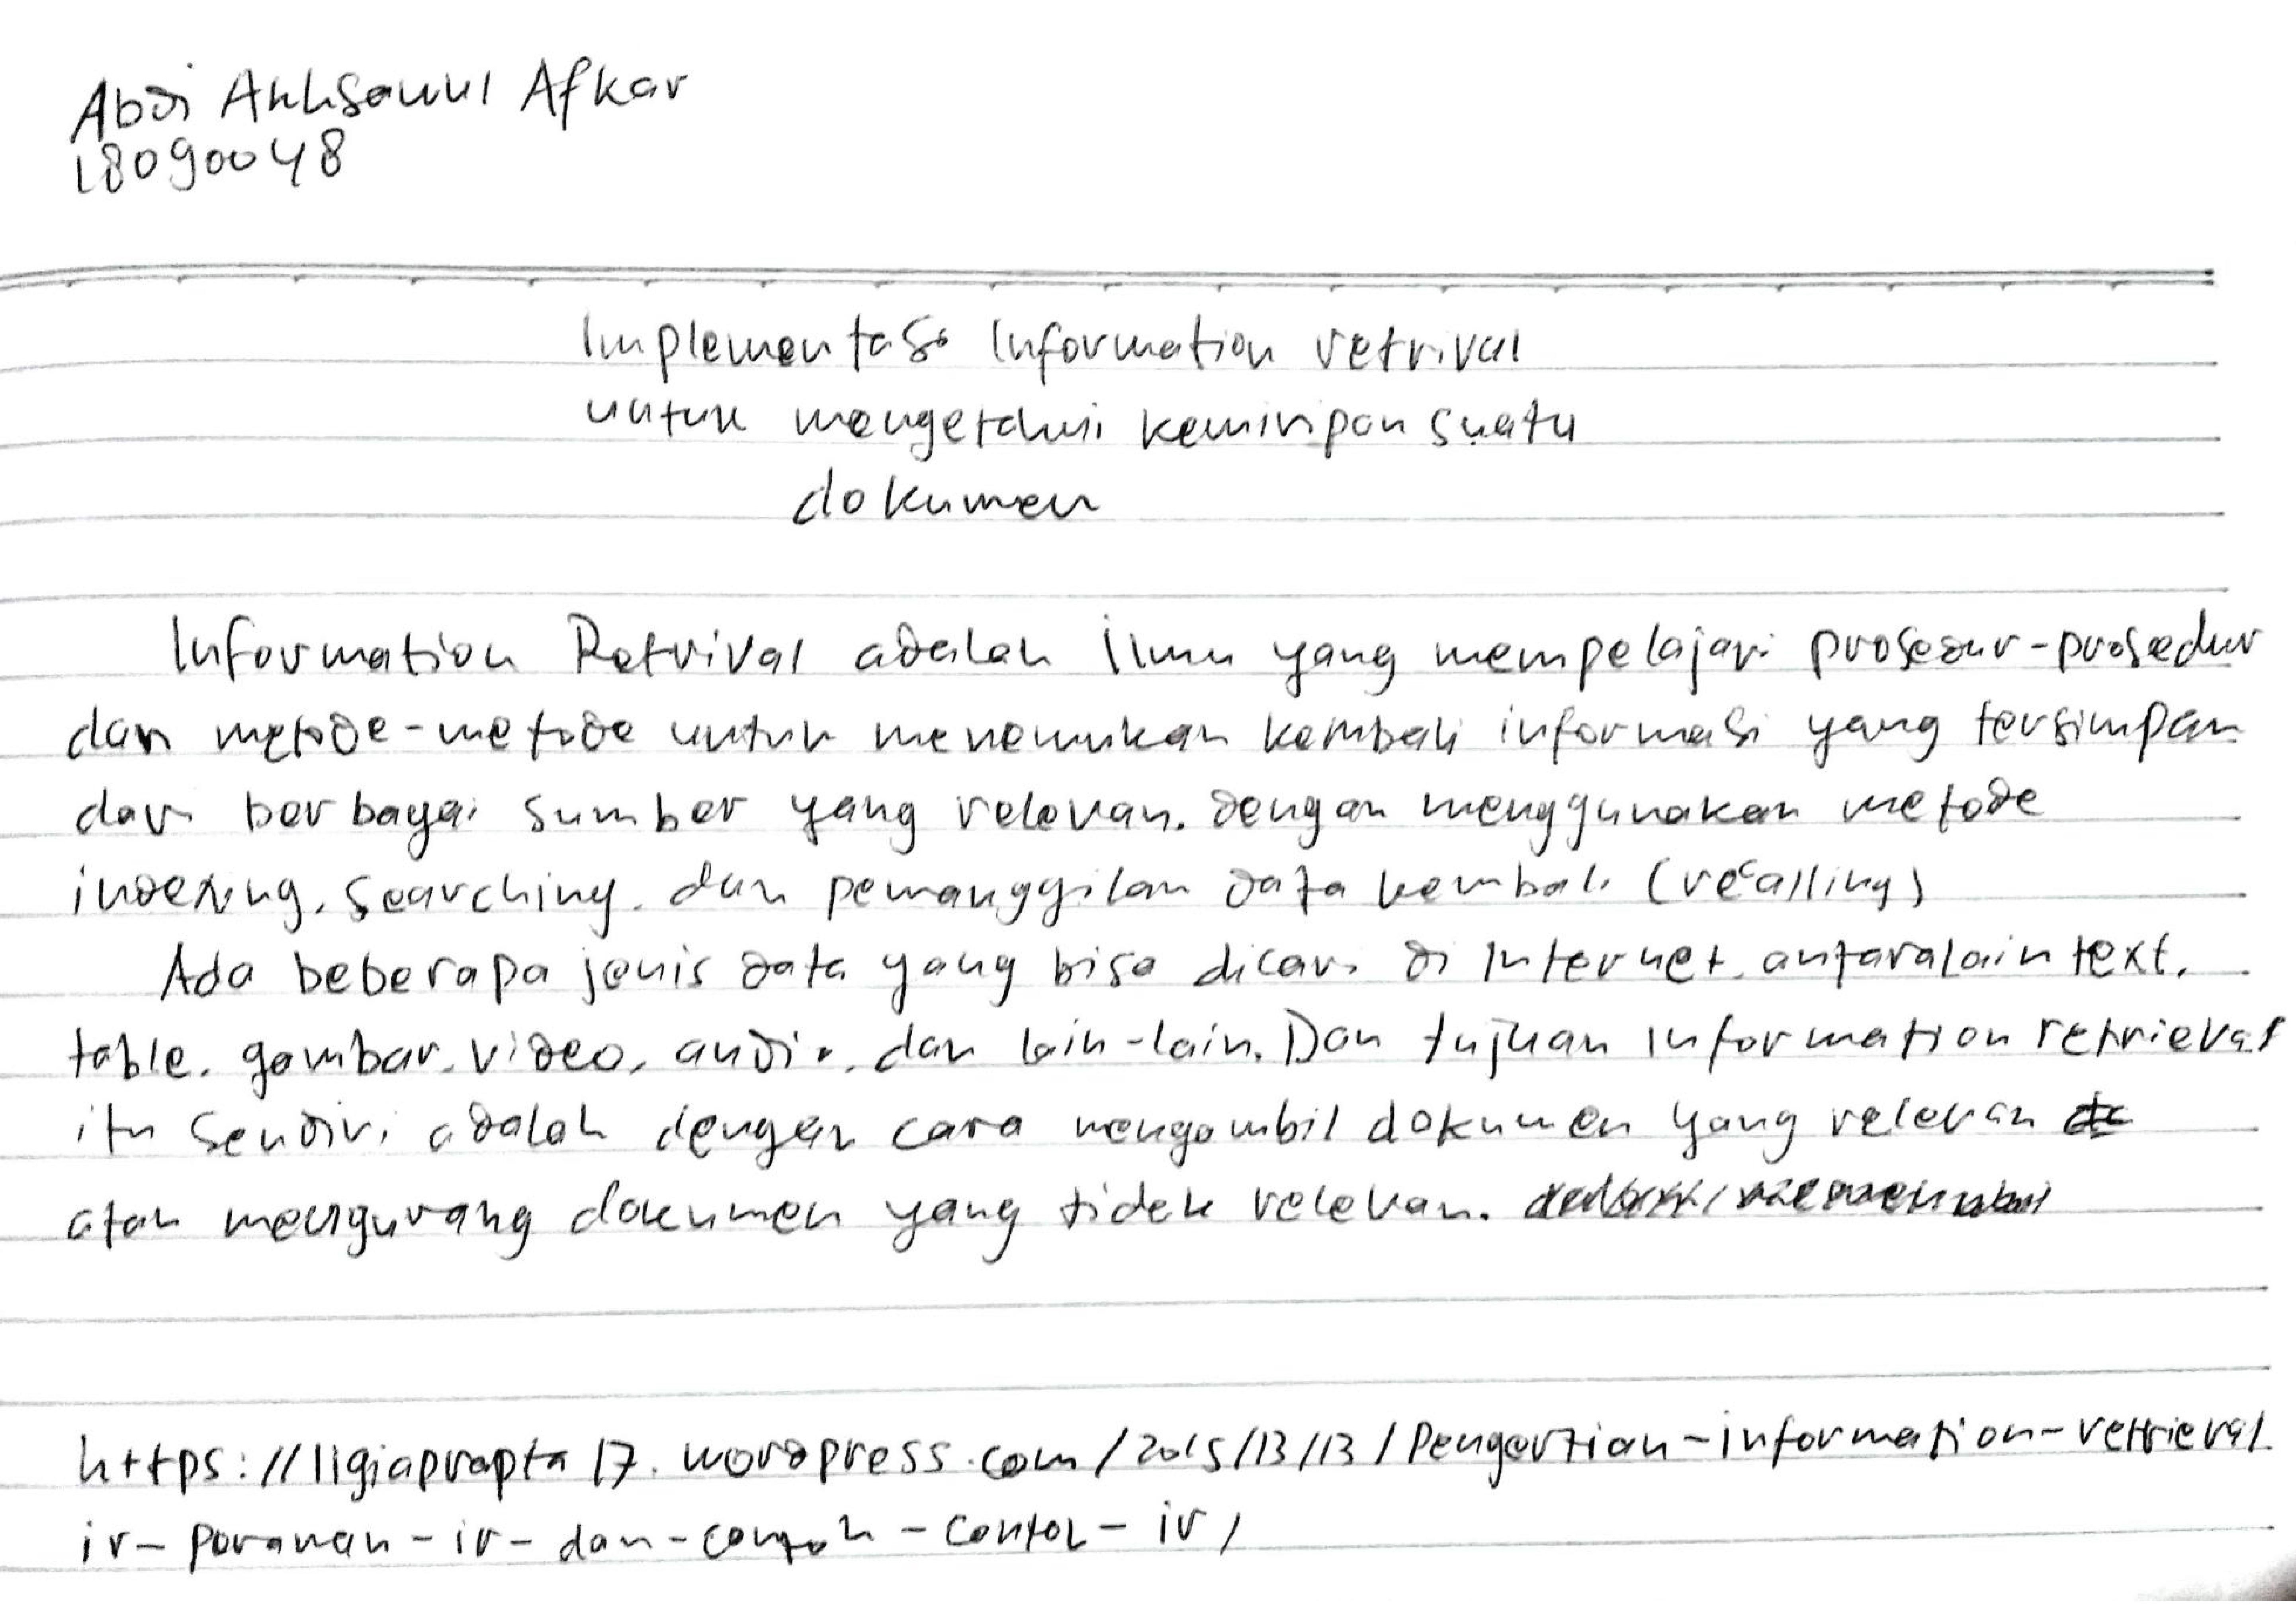 Abdi Akhsanul Afkar
18090048
Implementasi Information retrival
untuk mengetahui kemiripan suatu
dokumen
Information Retrival adalah ilmu yang mempelajari prosedur-prosedur
dan metode-metode untuk menemukan kembali informasi yang tersimpan
dari berbagai sumber yang relevan. dengan menggunakan metode
indexing, searching, dan pemanggilan data kembali (recalling)
Ada beberapa jenis data yang bisa dicari di Internet, antaralain text,
table, gambar, video, audio, dan lain-lain. Dan tujuan information retrieval
itu sendiri adalah dengan cara mengambil dokumen yang relevan
atau mengurang dokumen yang tidak relevan.
https://ligiaprapta17.wordpress.com/2015/13/13/Pengertian-information-retrieval
ir-peranan-ir-dan-contoh-contoh-ir/